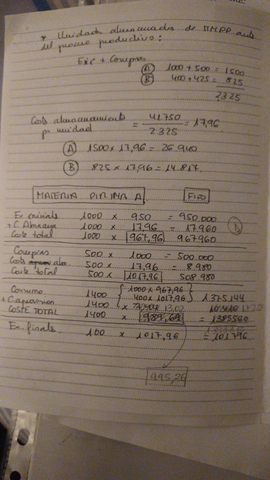 * Unidades almacenadas de MMPP ante
del proceso productivo:
Exi + Compras
(A) 1000 + 500 = 1500
(B) 400 + 425 = 825
2325
Coste almacenamiento
p. unidad = 41750 / 2325 = 17,96
(A) 1500 x 17,96 = 26.940
(B) 825 x 17,96 = 14.817.
MATERIA PRIMA A FIFO
Ex. iniciales 1000 x 950 = 950.000
+ C. Almacen 1000 x 17,96 = 17.960
Coste total 1000 x 967,96 967960
Compras 500 x 1000 = 500.000
Coste alm. 500 x 17,96 = 8.980
Coste total 500 x 1017,96 508.980
Consumo 1400 { 1000 x 967,96
400 x 1017,96 } 1375144
+ Capataces 1400 x
COSTE TOTAL 1400 x
Ex. finales 100 x 1017,96 = 101796
995,26